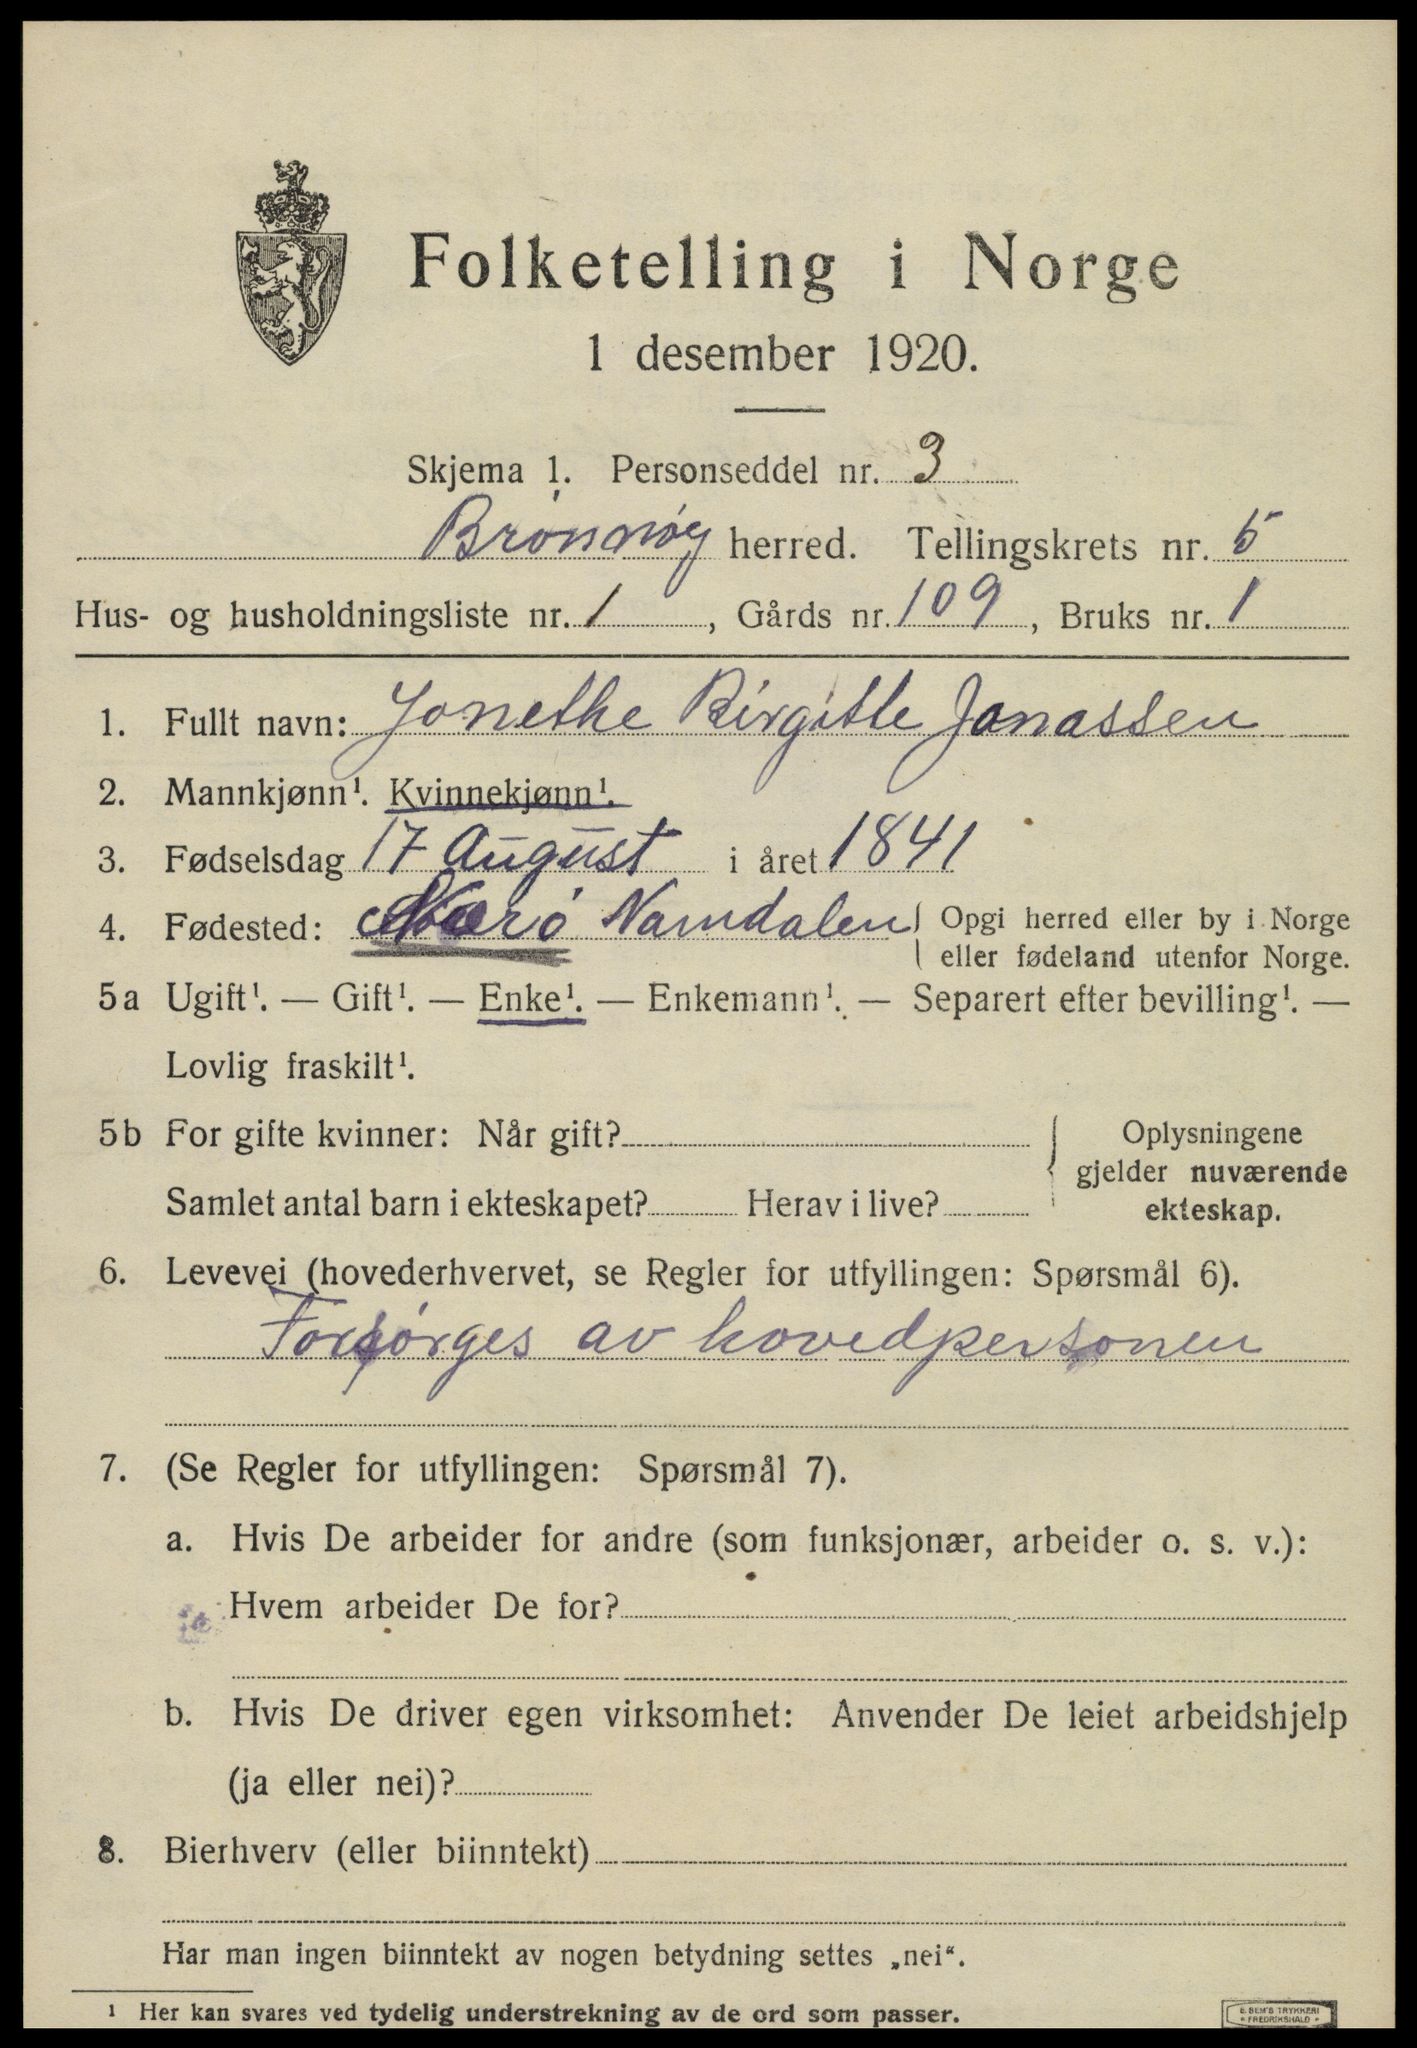 Folketelling i Norge
1 desember 1920.
Skjema 1. Personseddel nr. 3
Brønnøy herred. Tellingskrets nr. 5
Hus- og husholdningsliste nr. 1, Gårds nr. 109, Bruks nr. 1
1. Fullt navn: Jonethe Birgitte Jonassen
2. Mannkjønn¹. Kvinnekjønn¹.
3. Fødselsdag 17 August i året 1841
4. Fødested: Nærö Namdalen { Opgi herred eller by i Norge
eller fødeland utenfor Norge.
5a Ugift¹. — Gift¹. — Enke¹. — Enkemann¹. — Separert efter bevilling¹. —
Lovlig fraskilt¹.
5b For gifte kvinner: Når gift? { Oplysningene
gjelder nuværende
Samlet antal barn i ekteskapet? Herav i live? ekteskap.
6. Levevei (hovederhvervet, se Regler for utfyllingen: Spørsmål 6).
Forsørges av hovedpersonen
7. (Se Regler for utfyllingen: Spørsmål 7).
a. Hvis De arbeider for andre (som funksjonær, arbeider o. s. v.):
Hvem arbeider De for?
b. Hvis De driver egen virksomhet: Anvender De leiet arbeidshjelp
(ja eller nei)?
8. Bierhverv (eller biinntekt)
Har man ingen biinntekt av nogen betydning settes „nei“.
¹ Her kan svares ved tydelig understrekning av de ord som passer.
E. SEM'S TRYKKERI
FREDRIKSHALD